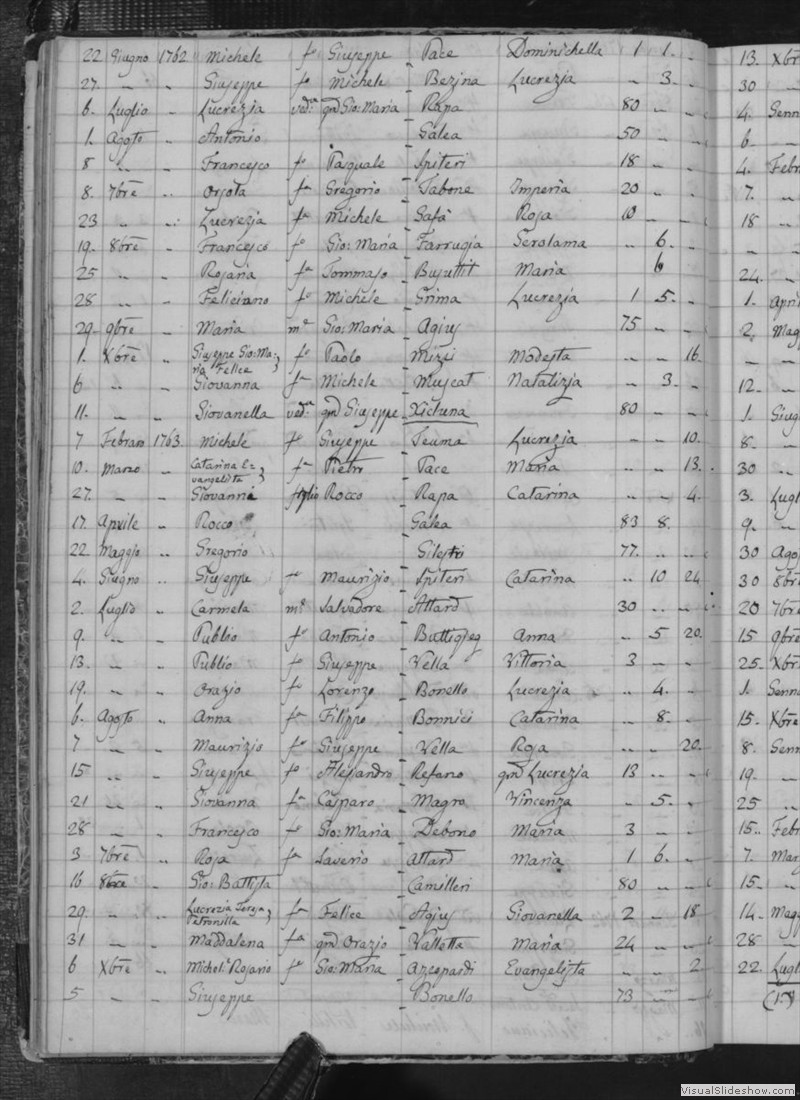 22 Giugno 1762 Michele fo Giuseppe Pace Dominichella 1 1. ..
27. .. .. Giuseppe fo Michele Bezina Lucrezia .. 3. ..
6. Luglio .. Lucrezia ved:a qm Gio: Maria Rapa 80 .. ..
1. Agoto .. Antonio Galea 50 .. ..
8 .. .. Francesco fo Pasquale Spiteri 18 .. ..
8. 7bre .. Orsola fa Gregorio Tabone Imperia 20 .. ..
23 .. .. Lucrezia fa Michele Gafà Rosa 10 .. ..
19. 8bre .. Francesco fo Gio: Maria Farrugia Gerolama .. 6. ..
25 .. .. Rosaria fa Tommaso Busuttil Maria 6
28 .. .. Feliciano fo Michele Grima Lucrezia 1 5. ..
29. 9bre .. Maria me Gio: Maria Agius 75 .. ..
1. Xbre .. Giuseppe Gio: Ma:
ria Felice fo Paolo Mizzi Modesta .. .. 16.
6 .. .. Giovanna fa Michele Muscat Natalizia .. 3. ..
11. .. .. Giovanella ved:a qm Giuseppe Xicluna 80 .. ..
7 Febraro 1763 Michele fo Giuseppe Teuma Lucrezia .. .. 10.
10. Marzo .. Catarina E=
vangelista fa Pietro Pace Maria .. .. 13.
27. .. .. Giovanni figlio Rocco Rapa Catarina .. .. 4.
17. Aprile .. Rocco Galea 83 8.
22. Maggio .. Gregorio 77. .. ..
4. Giugno .. Giuseppe fo Maurizio Spiteri Catarina .. 10 24
2. Luglio .. Carmela me Salvadore Attard 30 .. ..
9. .. .. Publio fo Antonio Buttigieg Anna .. 5 20.
13. .. .. Publio fo Giuseppe Vella Vittoria 3 .. ..
19. .. .. Orazio fo Lorenzo Bonello Lucrezia .. 4. ..
6. Agosto .. Anna fa Filippo Bonnici Catarina .. 8. ..
7 .. .. Maurizio fo Giuseppe Vella Rosa .. .. 20.
15 .. .. Giuseppe fo Alessandro Refano qm Lucrezia 13 .. ..
21 .. .. Giovanna fa Casparo Magro Vincenza .. 5. ..
28 .. .. Francesco fo Gio: Maria Debono Maria 3 .. ..
3 7bre .. Rosa fa Saverio Attard Maria 1 6. ..
16 8bre .. Gio: Battista Camilleri 80 .. ..
29. .. .. Lucrezia Teresa
Petronilla fa Felice Agius Giovanella 2 .. 18
31 .. .. Maddalena fa qm Orazio Valletta Maria 24 .. ..
6 Xbre .. Rosario fo Gio: Maria Azzopardi Evangelista .. .. 2
5 .. .. Giuseppe Bonello 73 .. ..
13. Xbre
30 ..
4. Genn
6 ..
4. Febr
7. ..
18 ..
24. ..
1. April
2. Magg
12. ..
1. Giug
8. ..
30 ..
3. Lugl
9. ..
30 Ago
30 8bre
20 7bre
15 9bre
25. Xbr
1. Genn
15. Xbre
8. Genn
19. ..
25 ..
15. Febr
7. Mar
15. ..
14. Magg
28 ..
22. Lugl
VisualSlideshow.com